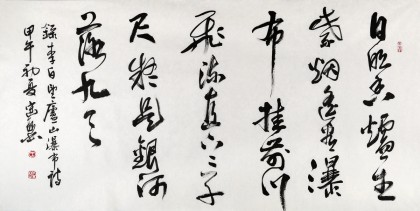 日照香炉生
紫烟遥看瀑
布挂前川
飞流直下三千
尺疑是银河
落九天
录李白望庐山瀑布诗
甲午初夏